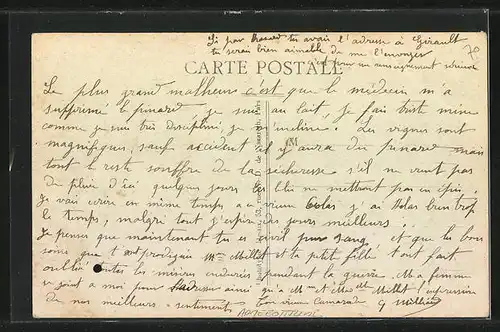 Si par hasard tu avais l'adresse à Girault
tu serais bien aimable de me l'envoyer
c'est pour un renseignement
CARTE POSTALE
Le plus grand malheur c'est que le médecin m'a
supprimé le pinard je suis au lait, je fais triste mine
comme je suis très discipliné, je m'incline. Les vignes sont
magnifiques, sauf accident il y aura du pinard mais
tout le reste souffre de la sécheresse s'il ne vient pas
de pluie d'ici quelques jours les blés ne mettront pas un épi,
je vais écrire en même temps à ce vieux Colas j'ai hélas bien trop
le temps, malgré tout j'espère des jours meilleurs.
Je pense que maintenant tu es pur sang, et que les bons
soins que t'ont prodigués Mme Millet et la petite fille t'ont fait
oublier toutes les misères endurées pendant la guerre. Ma femme
se joint à moi pour ainsi qu'à Mme et Melle Millet l'expression
de nos meilleurs sentiments Ton vieux Camarade